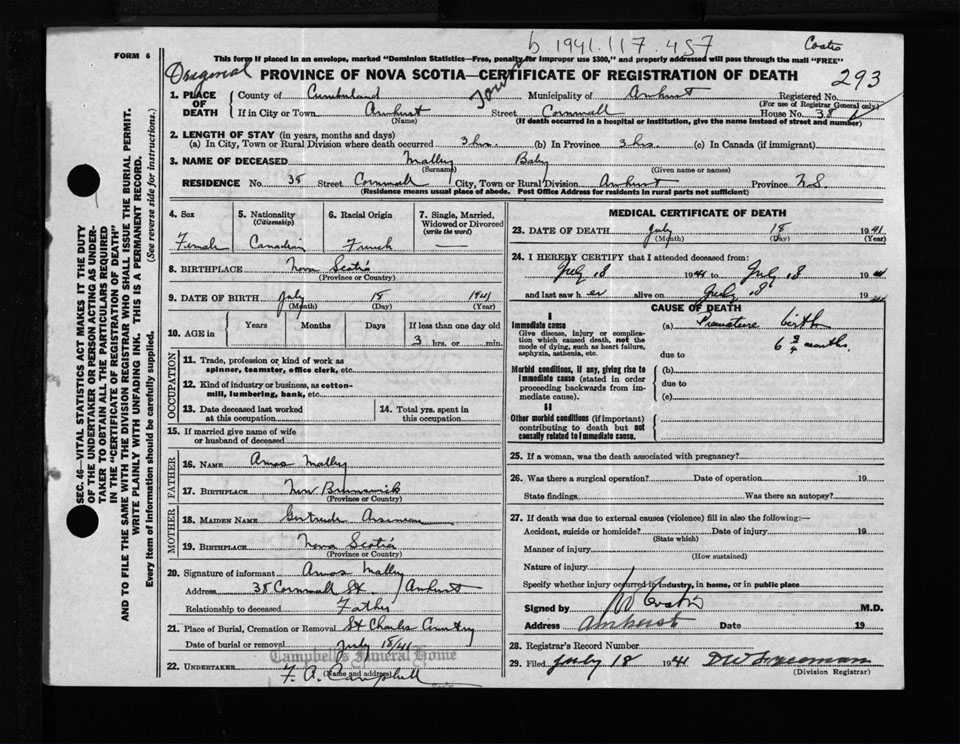 b. 1941.117.457
Coates
FORM 6
This form if placed in an envelope, marked "Dominion Statistics—Free, penalty for improper use $300," and properly addressed will pass through the mail "FREE"
Original
PROVINCE OF NOVA SCOTIA—CERTIFICATE OF REGISTRATION OF DEATH
293
Town
1. PLACE OF DEATH
County of Cumberland Municipality of Amherst Registered No.
(For use of Registrar General only)
If in City or Town Amherst Street Cornwall House No. 38
(Name) (If death occurred in a hospital or institution, give the name instead of street and number)
2. LENGTH OF STAY (in years, months and days)
(a) In City, Town or Rural Division where death occurred 3 hrs. (b) In Province 3 hrs. (c) In Canada (if immigrant)
3. NAME OF DECEASED Malley Baby
(Surname) (Given name or names)
RESIDENCE No. 38 Street Cornwall City, Town or Rural Division Amherst Province N.S.
(Residence means usual place of abode. Post Office Address for residents in rural parts not sufficient)
4. Sex
Female
5. Nationality
(Citizenship)
Canadian
6. Racial Origin
French
7. Single, Married, Widowed or Divorced
(write the word)
8. BIRTHPLACE Nova Scotia
(Province or Country)
9. DATE OF BIRTH July 18 1941
(Month) (Day) (Year)
10. AGE in Years Months Days If less than one day old
3 hrs. or min.
OCCUPATION
11. Trade, profession or kind of work as
spinner, teamster, office clerk, etc.
12. Kind of industry or business, as cotton-
mill, lumbering, bank, etc.
13. Date deceased last worked
at this occupation
14. Total yrs. spent in
this occupation
15. If married give name of wife
or husband of deceased
FATHER
16. NAME Amos Malley
17. BIRTHPLACE New Brunswick
(Province or Country)
MOTHER
18. MAIDEN NAME Gertrude Arseneau
19. BIRTHPLACE Nova Scotia
(Province or Country)
20. Signature of informant Amos Malley
Address 38 Cornwall St. Amherst
Relationship to deceased Father
21. Place of Burial, Cremation or Removal St Charles Cemetry
Date of burial or removal July 18/41
Campbells Funeral Home
22. UNDERTAKER F. A. Campbell
(Name and address)
MEDICAL CERTIFICATE OF DEATH
23. DATE OF DEATH July 18 1941
(Month) (Day) (Year)
24. I HEREBY CERTIFY that I attended deceased from:
July 18 1941 to July 18 1941
and last saw her alive on July 18 1941
CAUSE OF DEATH
I
Immediate cause
Give disease, injury or complica-
tion which caused death, not the
mode of dying, such as heart failure,
asphyxia, asthenia, etc.
(a) Premature birth
6 3/4 months.
due to
Morbid conditions, if any, giving rise to
immediate cause (stated in order
proceeding backwards from im-
mediate cause).
(b)
due to
(c)
II
Other morbid conditions (if important)
contributing to death but not
causally related to immediate cause.
25. If a woman, was the death associated with pregnancy?
26. Was there a surgical operation? Date of operation 19
State findings Was there an autopsy?
27. If death was due to external causes (violence) fill in also the following:—
Accident, suicide or homicide? Date of injury 19
(State which)
Manner of injury
(How sustained)
Nature of injury
Specify whether injury occurred in industry, in home, or in public place
Signed by Coates M.D.
Address Amherst Date 19
28. Registrar's Record Number
29. Filed July 18 1941
(Division Registrar)
SEC. 46—VITAL STATISTICS ACT MAKES IT THE DUTY
OF THE UNDERTAKER OR PERSON ACTING AS UNDER-
TAKER TO OBTAIN ALL THE PARTICULARS REQUIRED
IN THE "CERTIFICATE OF REGISTRATION OF DEATH"
AND TO FILE THE SAME WITH THE DIVISION REGISTRAR WHO SHALL ISSUE THE BURIAL PERMIT.
WRITE PLAINLY WITH UNFADING INK. THIS IS A PERMANENT RECORD.
Every item of information should be carefully supplied. (See reverse side for instructions.)